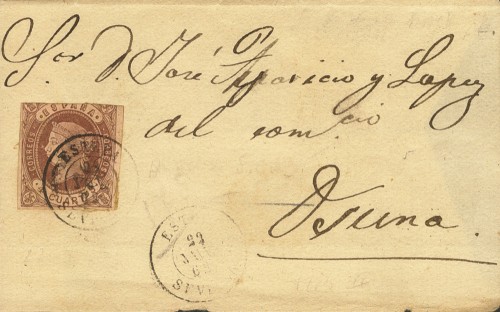 Sor. D. José Aparicio y Lopez
del comcio
Osuna.
ESPAÑA
CORREOS
CUARTOS
EST
EST
22
SEVI